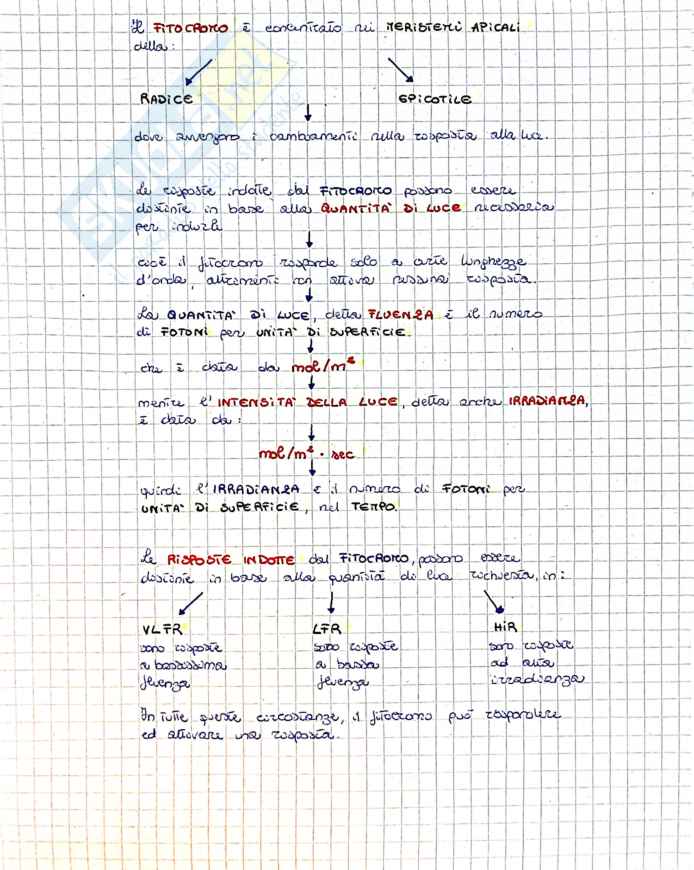 Il FITOCROMO è concentrato nei MERISTEMI APICALI
della:
RADICE EPICOTILE
dove avvengono i cambiamenti nella risposta alla luce.
Le risposte indotte dal FITOCROMO possono essere
distinte in base alla QUANTITA' DI LUCE necessaria
per indurle
cioè il fitocromo risponde solo a certe lunghezze
d'onda, altrimenti non attiva nessuna risposta.
La QUANTITA' DI LUCE, detta FLUENZA è il numero
di FOTONI per UNITA' DI SUPERFICIE.
che è data da mol/m²
mentre l'INTENSITA' DELLA LUCE, detta anche IRRADIANZA,
è data da:
mol/m² · sec
quindi l'IRRADIANZA è il numero di FOTONI per
UNITA' DI SUPERFICIE, nel TEMPO.
Le RISPOSTE INDOTTE dal FITOCROMO, possono essere
distinte in base alla quantità di luce richiesta, in:
VLFR LFR HIR
sono risposte sono risposte sono risposte
a bassissima a bassa ad alta
fluenza fluenza irradianza
In tutte queste circostanze, il fitocromo può rispondere
ed attivare una risposta.